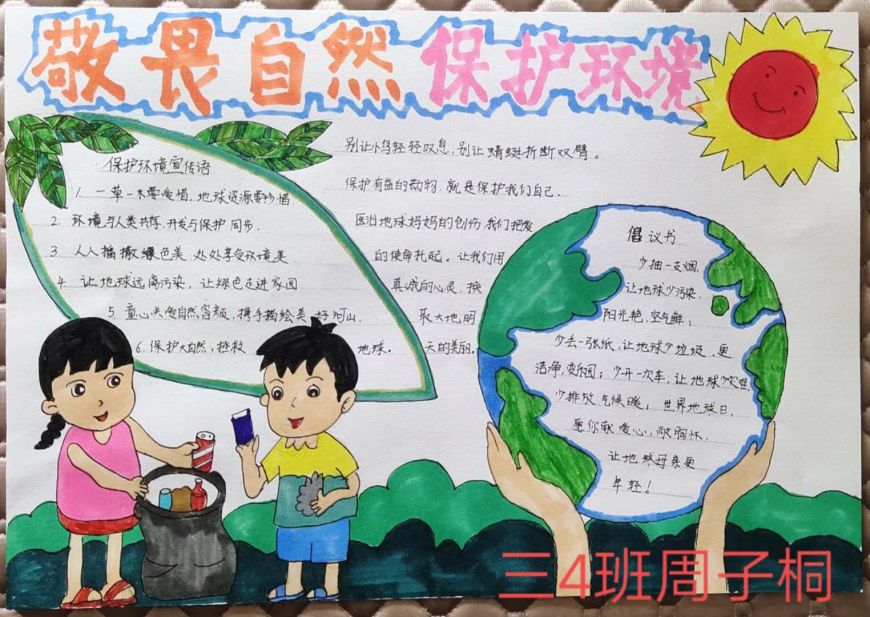 敬畏自然 保护环境
保护环境宣传语
1. 一草一木要爱惜,地球资源要珍惜
2. 环境与人类共存,开发与保护同步.
3 人人播撒绿色美 处处享受环境美
4. 让地球远离污染, 让绿色走进家园
5. 童心关爱自然容颜,携手描绘美好河山.
6. 保护大自然,拯救地球.
别让小鸟轻轻叹息,别让蜻蜓折断双臂。
保护有益的动物,就是保护我们自己.
医治地球妈妈的创伤,我们把爱
的使命托起, 让我们用
真诚的心灵,换
取大地明
天的美丽。
倡议书
少抽一支烟,
让地球少污染,
阳光艳,空气鲜;
少丢一张纸,让地球少垃圾,更
洁净,变乐园;少开一次车,让地球少
少排放,气候暖;世界地球日,
愿你献爱心,敞胸怀,
让地球母亲更
年轻!
三4班周子桐